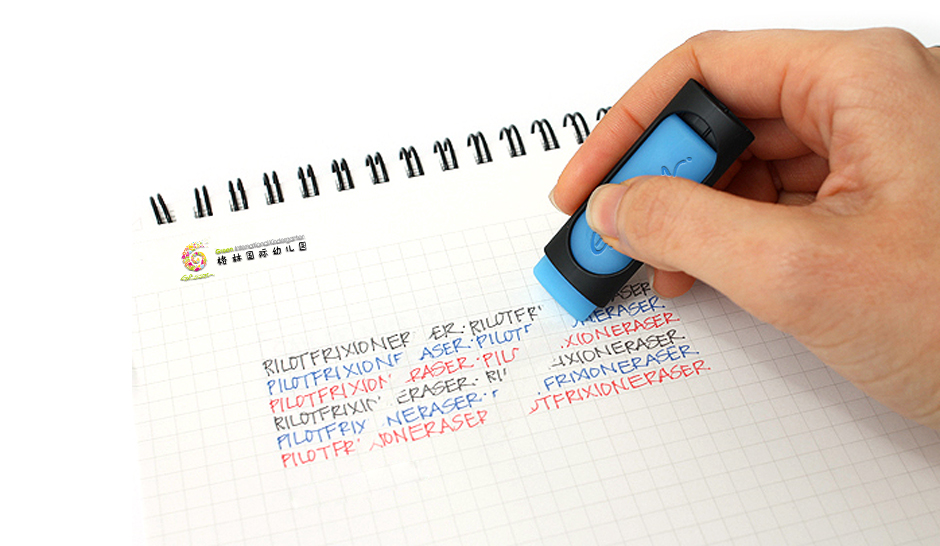 Green International Kindergarten
格林国际幼儿园
RILOTFRIXIONER ER. RILOTFR ASER
PILOTFRIXIONF ASER. PILOT NERASER
PILOTFRIXION RASER. PIL XIONERASER
RILOTFRIXIN ERASER. RI IXIONERASER
PILOTFRIX NERASER. FRIXIONERASER.
PILOTFR IONERASER OTFRIXIONERASER.